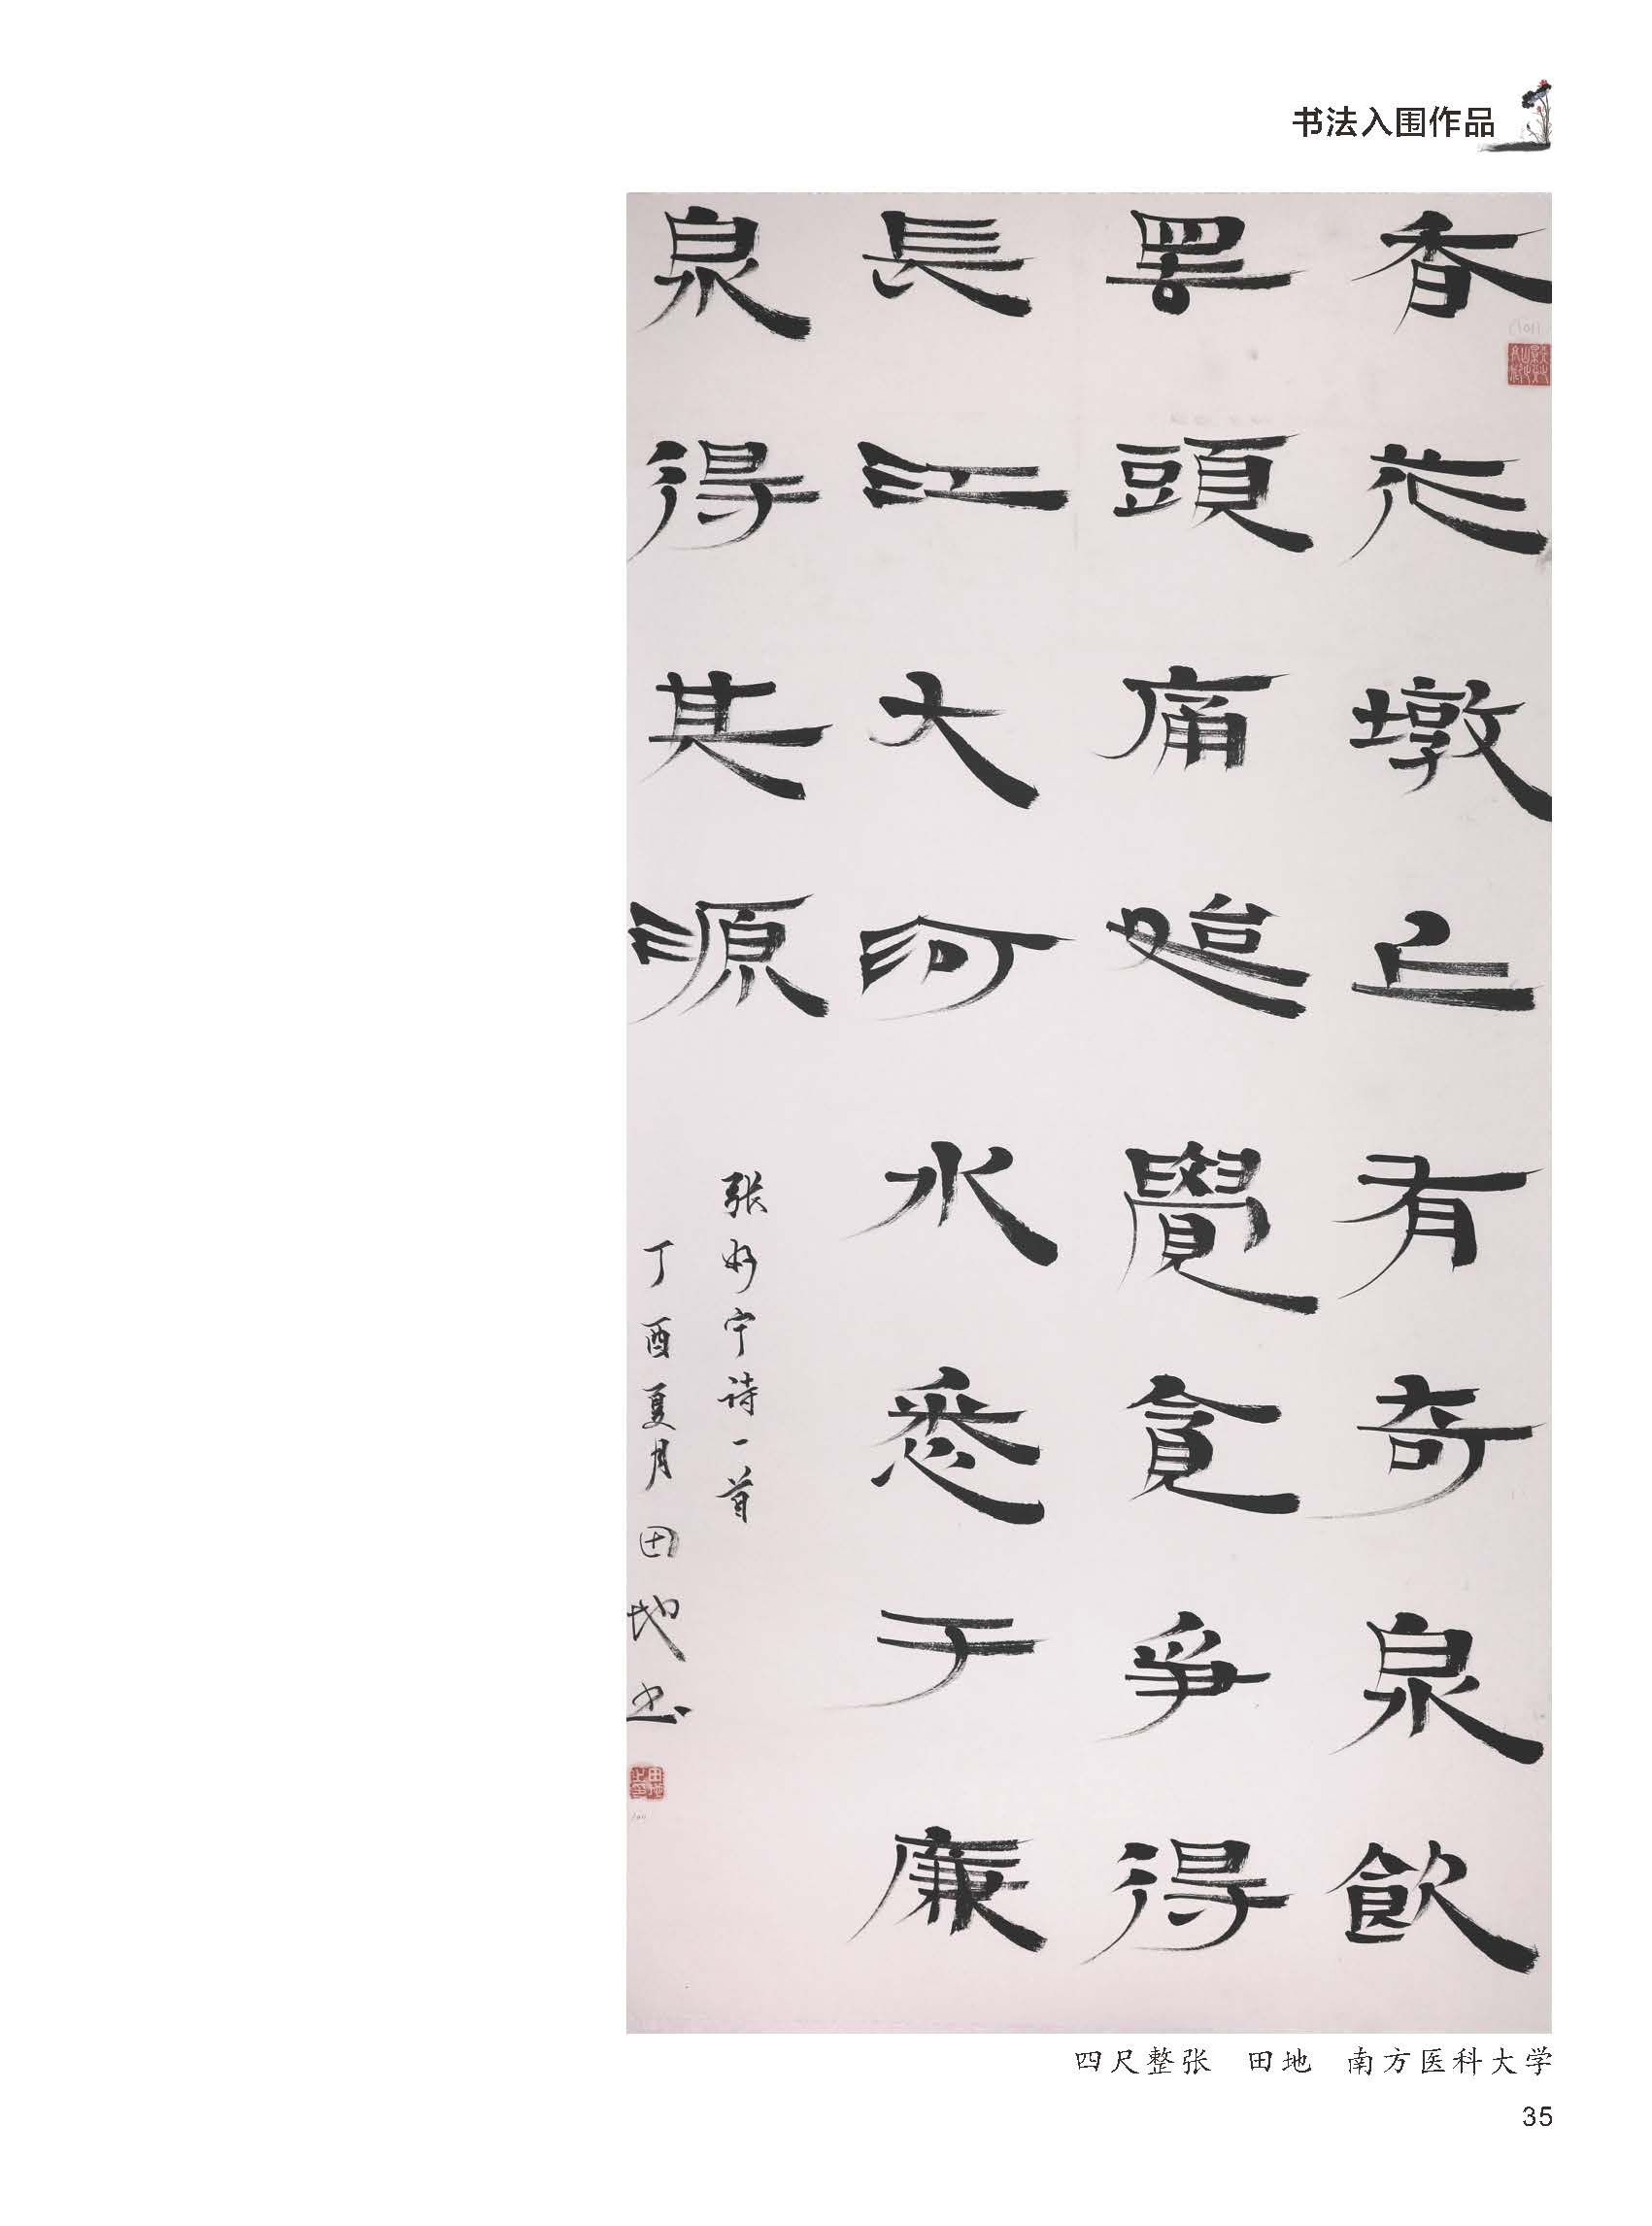 书法入围作品
香花墩上有奇泉飲
罢頭痛始覺貪爭得
長江大河水悉于廉
泉得其源
张好宁诗一首
丁酉夏月田地书
田地之印
四尺整张 田地 南方医科大学
35